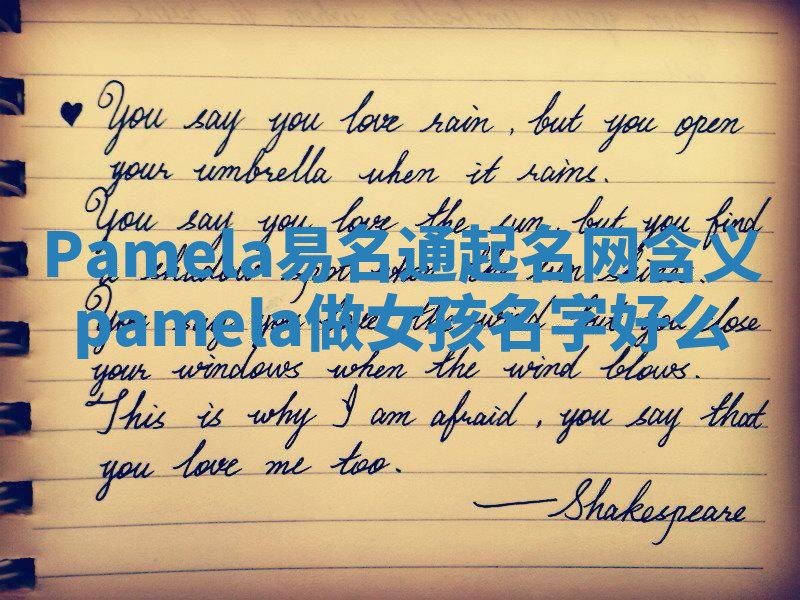 ♥ You say you love rain, but you open
your umbrella when it rains.
You say you love the sun, but you find
a shadow spot when the sun shines.
Pamela易名通起名网含义
You say you love the wind, but you close
pamela做女孩名字好么
your windows when the wind blows.
This is why I am afraid, you say that
you love me too.
—Shakespeare